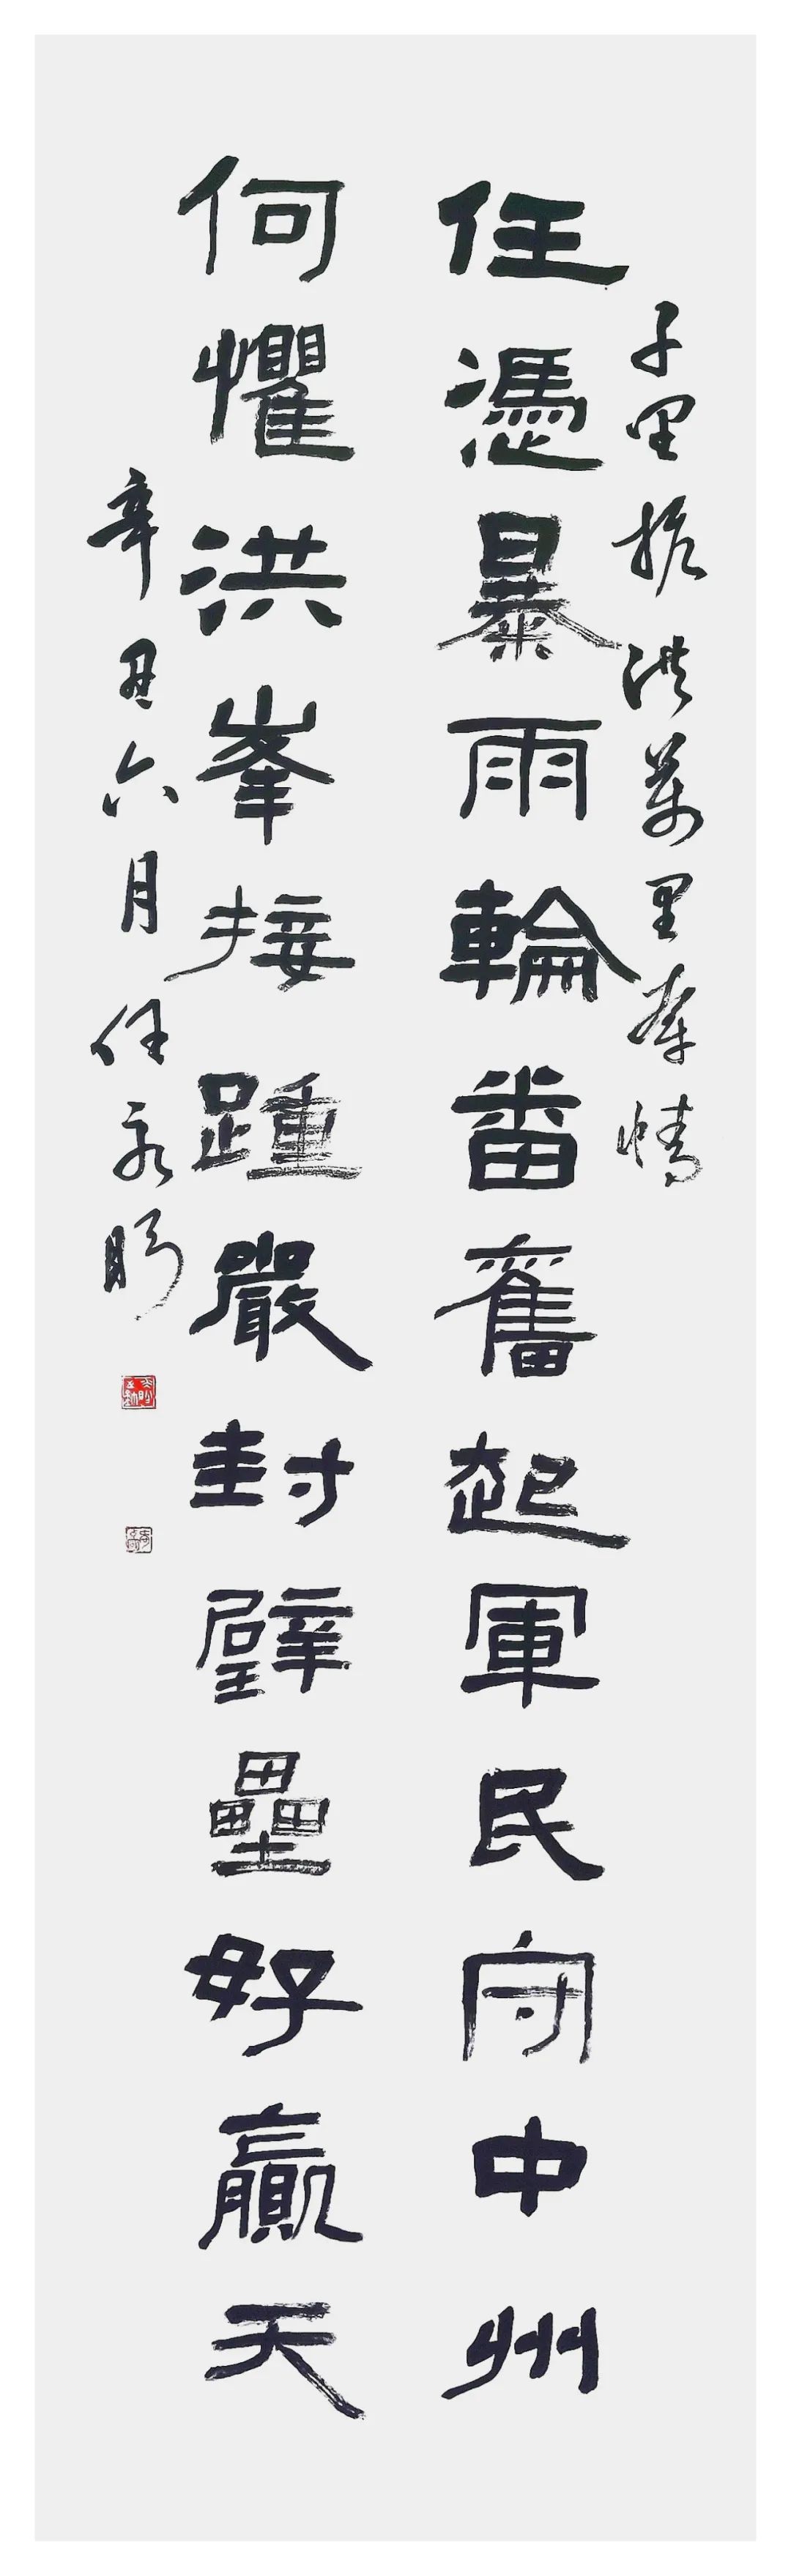 千里抗洪萬里牽情
任憑暴雨輪番奮起軍民守中州
何懼洪峯接踵嚴封壁壘好贏天
辛丑六月任永